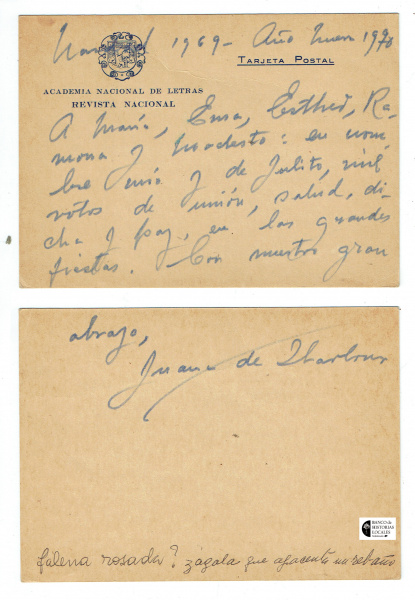 Navidad 1969 - Año Nuevo 1970
TARJETA POSTAL
ACADEMIA NACIONAL DE LETRAS
REVISTA NACIONAL
A María, Ema, Esther, Ra-
mona y Modesto: en nom
bre mío y de Julito, mil
votos de unión, salud, di-
cha y paz, en las grandes
fiestas. Con nuestro gran
abrazo,
Juana de Ibarbourou
falena rosada? zágala que apacenta un rebaño
BANCO de
HISTORIAS
LOCALES